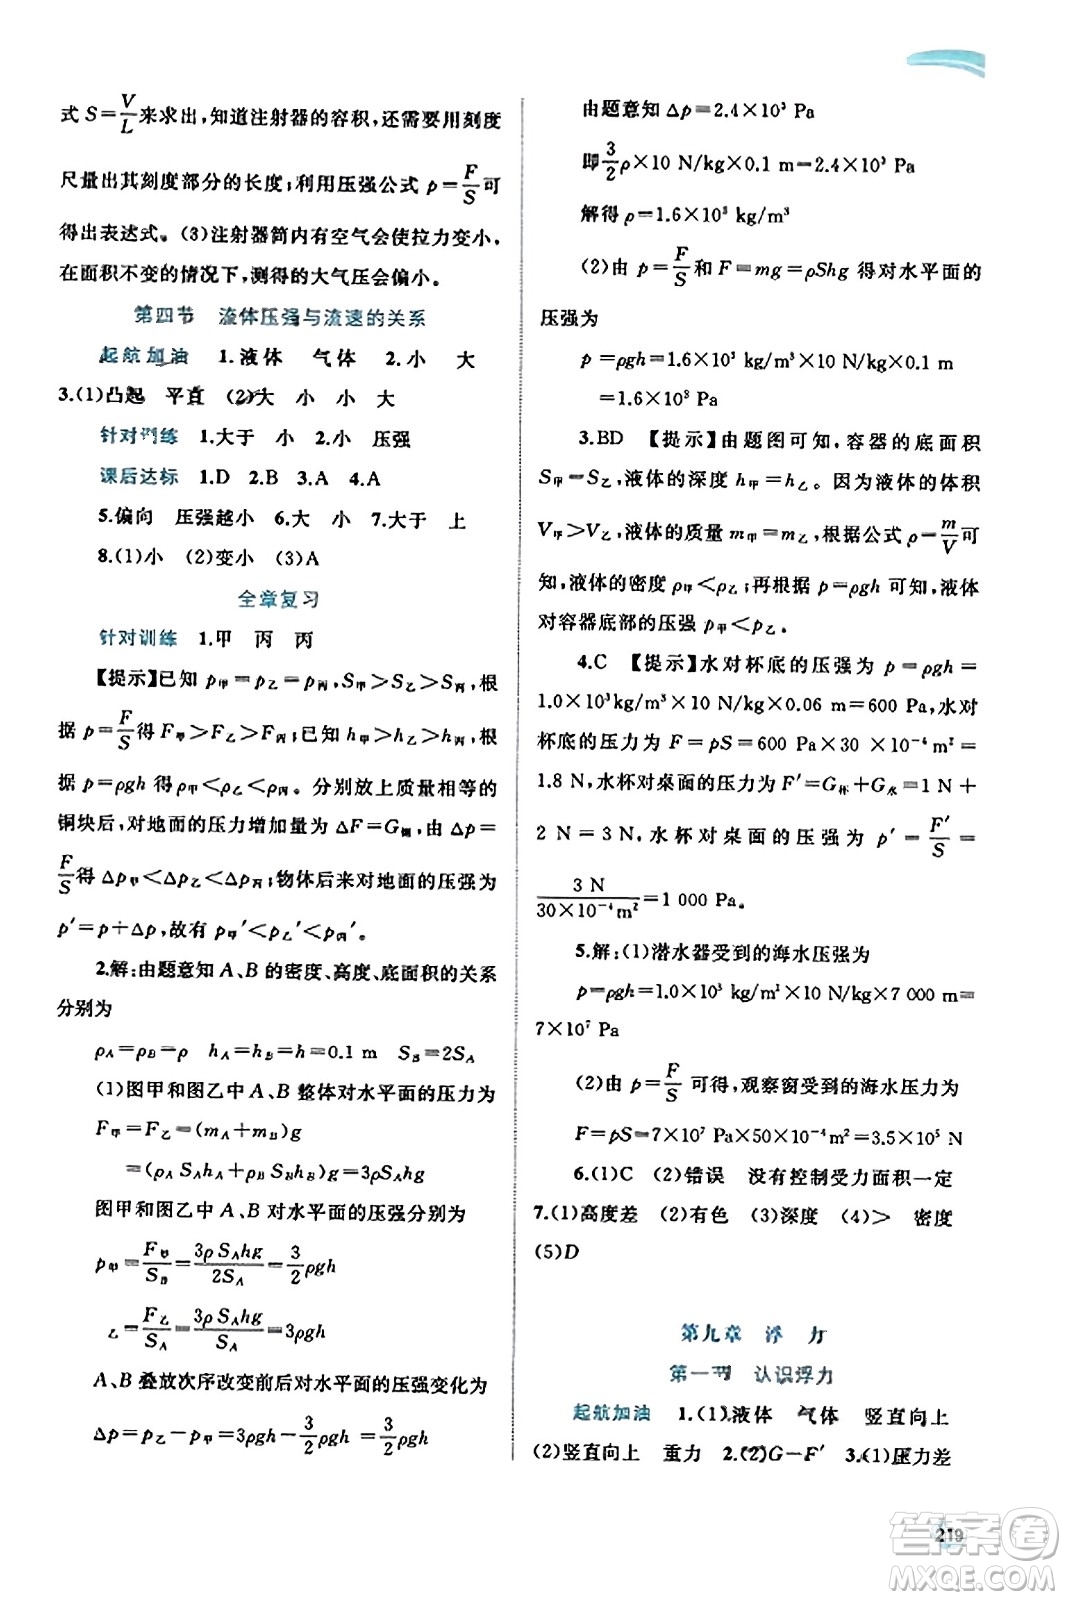 式 S=V/L来求出,知道注射器的容积,还需要用刻度
尺量出其刻度部分的长度;利用压强公式 p=F/S可
得出表达式。(3)注射器筒内有空气会使拉力变小,
在面积不变的情况下,测得的大气压会偏小。
第四节 流体压强与流速的关系
起航加油 1.液体 气体 2.小 大
3.(1)凸起 平直 (2)大 小 小 大
针对训练 1.大于 小 2.小 压强
课后达标 1.D 2.B 3.A 4.A
5.偏向 压强越小 6.大 小 7.大于 上
8.(1)小 (2)变小 (3)A
全章复习
针对训练 1.甲 丙 丙
【提示】已知 p甲=p乙=p丙,S甲>S乙>S丙,根
据 p=F/S得 F甲>F乙>F丙;已知 h甲>h乙>h丙,根
据 p=ρgh 得 ρ甲<ρ乙<ρ丙。分别放上质量相等的
铜块后,对地面的压力增加量为 ΔF=G铜,由 Δp=
F/S得 Δp甲<Δp乙<Δp丙;物体后来对地面的压强为
p′=p+Δp,故有 p甲′<p乙′<p丙′。
2.解:由题意知 A、B 的密度、高度、底面积的关系
分别为
ρA=ρB=ρ hA=hB=h=0.1 m SB=2SA
(1)图甲和图乙中 A、B 整体对水平面的压力为
F甲=F乙=(mA+mB)g
=(ρA SA hA+ρB SB hB)g=3ρSA hg
图甲和图乙中 A、B 对水平面的压强分别为
p甲=F甲/SB=3ρSAhg/2SA=3/2ρgh
乙=F乙/SA=3ρSAhg/SA=3ρgh
A、B 叠放次序改变前后对水平面的压强变化为
Δp=p乙-p甲=3ρgh-3/2ρgh=3/2ρgh
由题意知 Δp=2.4×10³ Pa
即3/2ρ×10 N/kg×0.1 m=2.4×10³ Pa
解得 ρ=1.6×10³ kg/m³
(2)由 p=F/S和 F=mg=ρShg 得对水平面的
压强为
p=ρgh=1.6×10³ kg/m³×10 N/kg×0.1 m
=1.6×10³ Pa
3.BD 【提示】由题图可知,容器的底面积
S甲=S乙,液体的深度 h甲=h乙。因为液体的体积
V甲>V乙,液体的质量 m甲=m乙,根据公式 ρ=m/V可
知,液体的密度 ρ甲<ρ乙;再根据 p=ρgh 可知,液体
对容器底部的压强 p甲<p乙。
4.C 【提示】水对杯底的压强为 p=ρgh=
1.0×10³kg/m³×10 N/kg×0.06 m=600 Pa,水对
杯底的压力为 F=pS=600 Pa×30 ×10⁻⁴m²=
1.8 N;水杯对桌面的压力为 F′=G杯+G水=1 N+
2 N=3 N,水杯对桌面的压强为 p′=F′/S=
3 N/30×10⁻⁴m²=1 000 Pa。
5.解:(1)潜水器受到的海水压强为
p=ρgh=1.0×10³ kg/m³×10 N/kg×7 000 m=
7×10⁷ Pa
(2)由 p=F/S 可得,观察窗受到的海水压力为
F=pS=7×10⁷ Pa×50×10⁻⁴m²=3.5×10⁵ N
6.(1)C (2)错误 没有控制受力面积一定
7.(1)高度差 (2)有色 (3)深度 (4)> 密度
(5)D
第九章 浮 力
第一节 认识浮力
起航加油 1.(1)液体 气体 竖直向上
(2)竖直向上 重力 2.(2)G-F′ 3.(1)压力差
219
答案卷
MXQE.COM